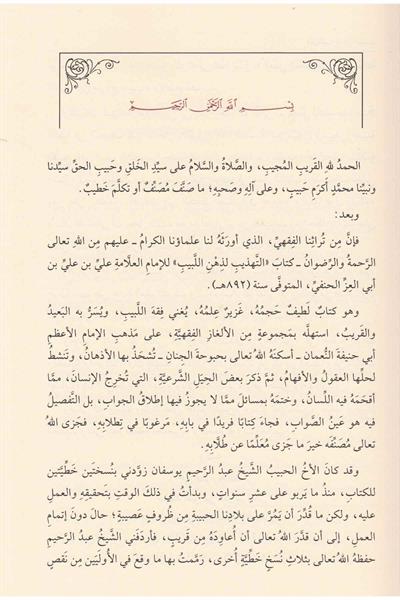 بِسْمِ اللَّهِ الرَّحْمَٰنِ الرَّحِيمِ
الحمدُ للهِ القَريبِ المُجيبِ، والصَّلاةُ والسَّلامُ على سيِّدِ الخَلقِ وحَبيبِ الحقِّ سيِّدنا
ونبيِّنا محمَّدٍ أَكرَمِ حَبيبٍ، وعلى آلِهِ وصَحبِهِ؛ ما صَنَّفَ مُصَنِّفٌ أو تكلَّمَ خَطيبٌ.
وبعد:
فإنَّ مِن تُراثِنا الفِقهيِّ، الذي أورَثَهُ لنا علماؤنا الكرامُ ـ عليهم مِن اللهِ تعالى
الرَّحمةُ والرِّضوانُ ـ كتابَ «التَّهذيبِ لذِهْنِ اللَّبيبِ» للإمامِ العلامةِ عليِّ بنِ عليِّ بنِ
أبي العِزِّ الحنفيِّ، المتوفَّى سنة (٨٩٢هـ).
وهو كتابٌ لَطيفٌ حَجمُهُ، غَزيرٌ عِلمُهُ، يُغني فِقهَ اللَّبيبِ، ويُسَرُّ به البَعيدُ
والقريبُ، استهلَّه بمَجموعةٍ مِن الألغازِ الفِقهيَّةِ، على مَذهبِ الإمامِ الأعظمِ
أبي حنيفةَ النُّعمانِ ـ أسكنَهُ اللهُ تعالى بحبوحةَ الجِنانِ ـ تُشحَذُ بها الأذهانُ، وتَنشَطُ
لحلِّها العقولُ والأفهامُ، ثمَّ ذكرَ بعضَ الحِيَلِ الشَّرعيَّةِ، التي تُخرِجُ الإنسانَ، ممَّا
أقحَمَهُ فيه اللِّسانُ، وختمَهُ بمسائلَ ممَّا لا يجوزُ فيها إطلاقُ الجوابِ، بل التَّفصيلُ
فيه هو عَينُ الصَّوابِ، فجاءَ كتابًا فريدًا في بابِهِ، مَرغوبًا في تِطلابِهِ، فجَزى اللهُ
تعالى مُصَنِّفَه خيرَ ما جَزى مُعَلِّمًا عن طُلَّابِهِ.
وقد كانَ الأخُ الحبيبُ الشَّيخُ عبدُ الرَّحيمِ يوسفان زوَّدني بنُسختَينِ خَطِّيَّتَينِ
للكتابِ، منذُ ما يَربو على عشرِ سنواتٍ، وبدأتُ في ذلكَ الوقتِ بتَحقيقِهِ والعملِ
عليه، ولكن ما قُدِّرَ أن يَمُرَّ على بلادِنا الحبيبةِ مِن ظُروفٍ عَصيبةٍ؛ حالَ دونَ إتمامِ
العملِ، إلى أن قدَّرَ اللهُ تعالى أن أُعاوِدَهُ مِن قريبٍ، فأردَفَني الشَّيخُ عبدُ الرَّحيمِ
حفظَهُ اللهُ تعالى بثلاثِ نُسَخٍ خَطِّيَّةٍ أُخرى، رَمَّمتُ بها ما وقعَ في الأُولَيَينِ مِن نَقصٍ